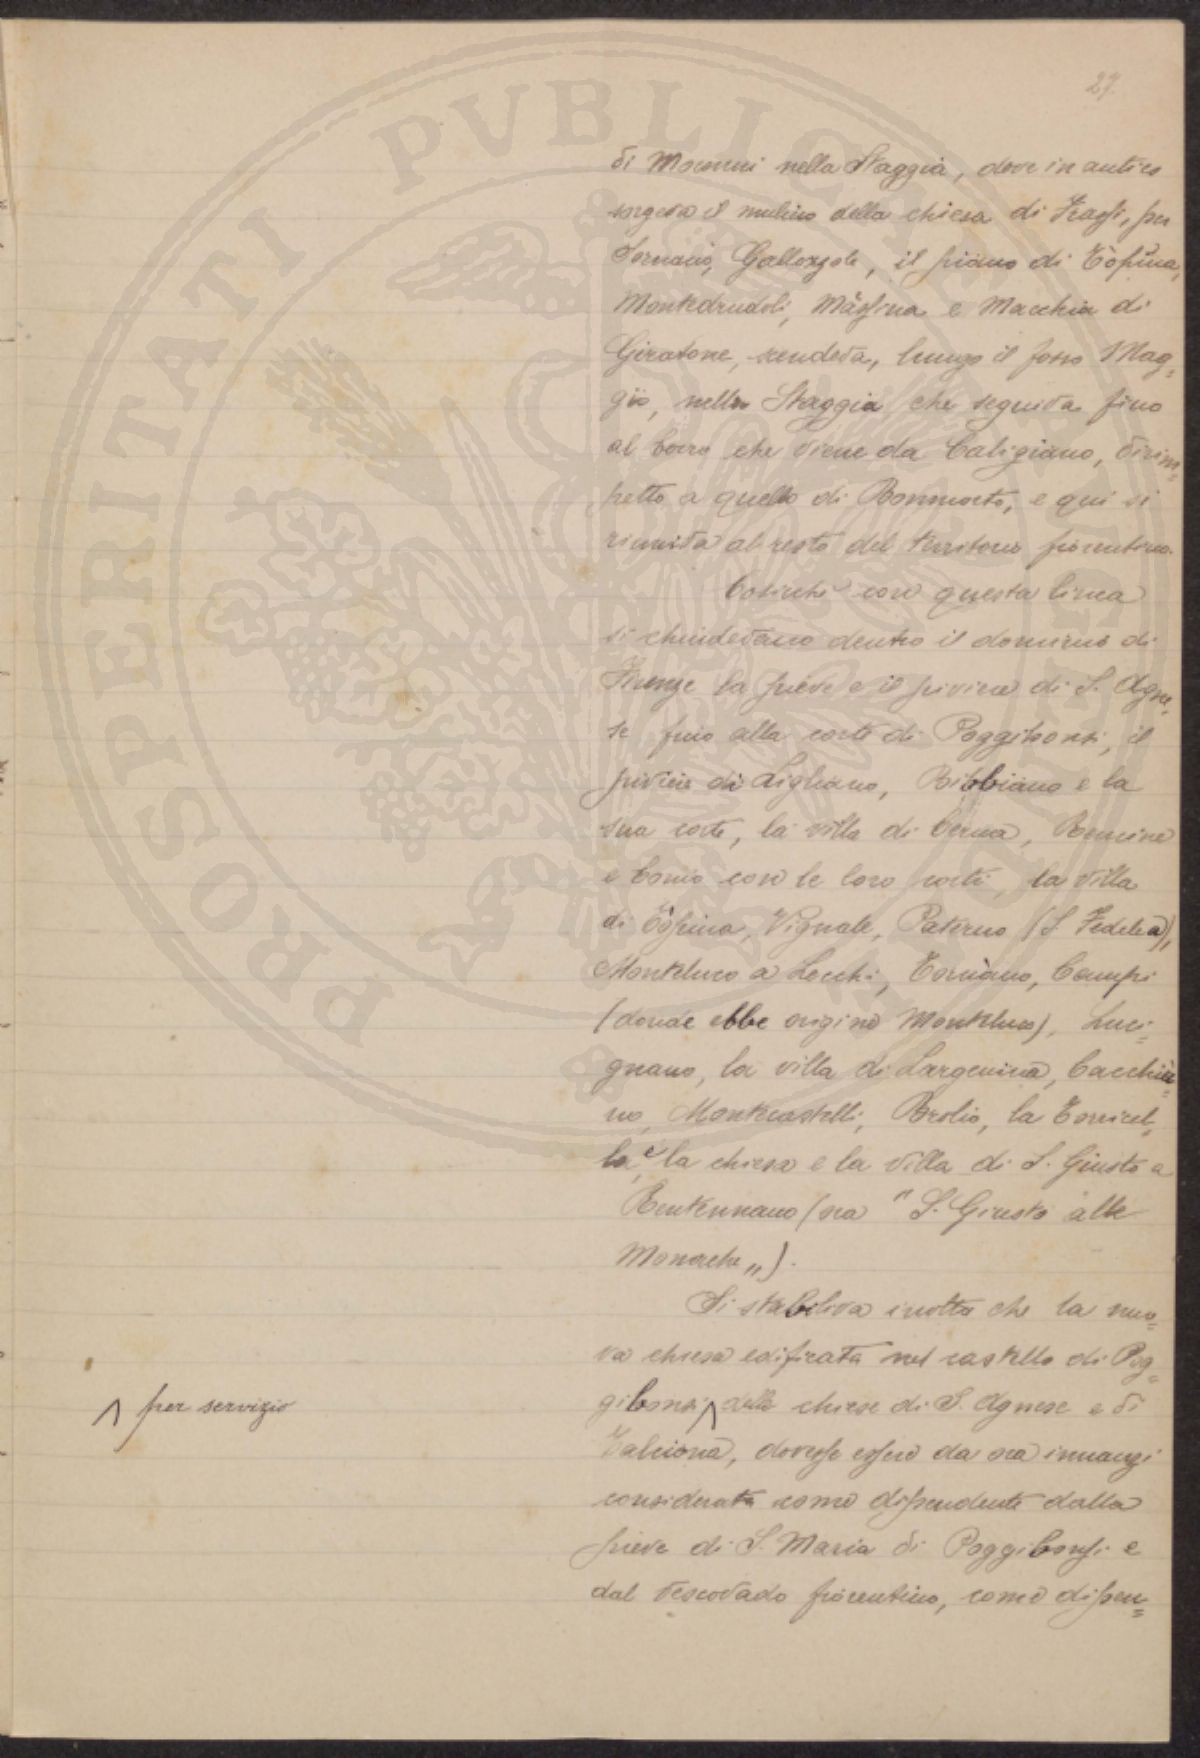 27.
di Mocenni nella Staggia, dove in antico
sorgeva il mulino della chiesa di Frassi, per
Tornano, Gallozzole, il piano di Tòpina,
Montedrudoli, Màssina e Macchia di
Giratone, scendeva, lungo il fosso Mag=
gio, nella Staggia che seguiva fino
al borro che viene da Caligiano, dirim=
petto a quello di Bonmorto, e qui si
riuniva al resto del territorio fiorentino.
Cosicchè con questa linea
si chiudevano dentro il dominio di
Firenze la pieve e il piviere di S. Agne=
se fino alla corte di Poggibonsi, il
piviere di Ligliano, Bibbiano e la
sua corte, la villa di Cerna, Rencine
e Conio con le loro corti, la villa
di Tòpina, Vignale, Paterno (S. Fedele a),
Monteluco a Lecchi, Tornano, Campi
(donde ebbe origine Monteluco), Luci=
gnano, la villa di Largenina, Cacchia=
no, Montecastelli, Brolio, la Torricel=
la, e la chiesa e la villa di S. Giusto a
Rentennano (ora "S. Giusto alle
Monache„).
Si stabiliva inoltre che la nuo=
va chiesa edificata nel castello di Pog=
gibonsi, delle chiese di S. Agnese e di
per servizio
Talciona, dovesse essere da ora innanzi
considerata come dipendente dalla
pieve di S. Maria di Poggibonsi e
dal vescovado fiorentino, come dipen=
PROSPERITATI PVBLICAE